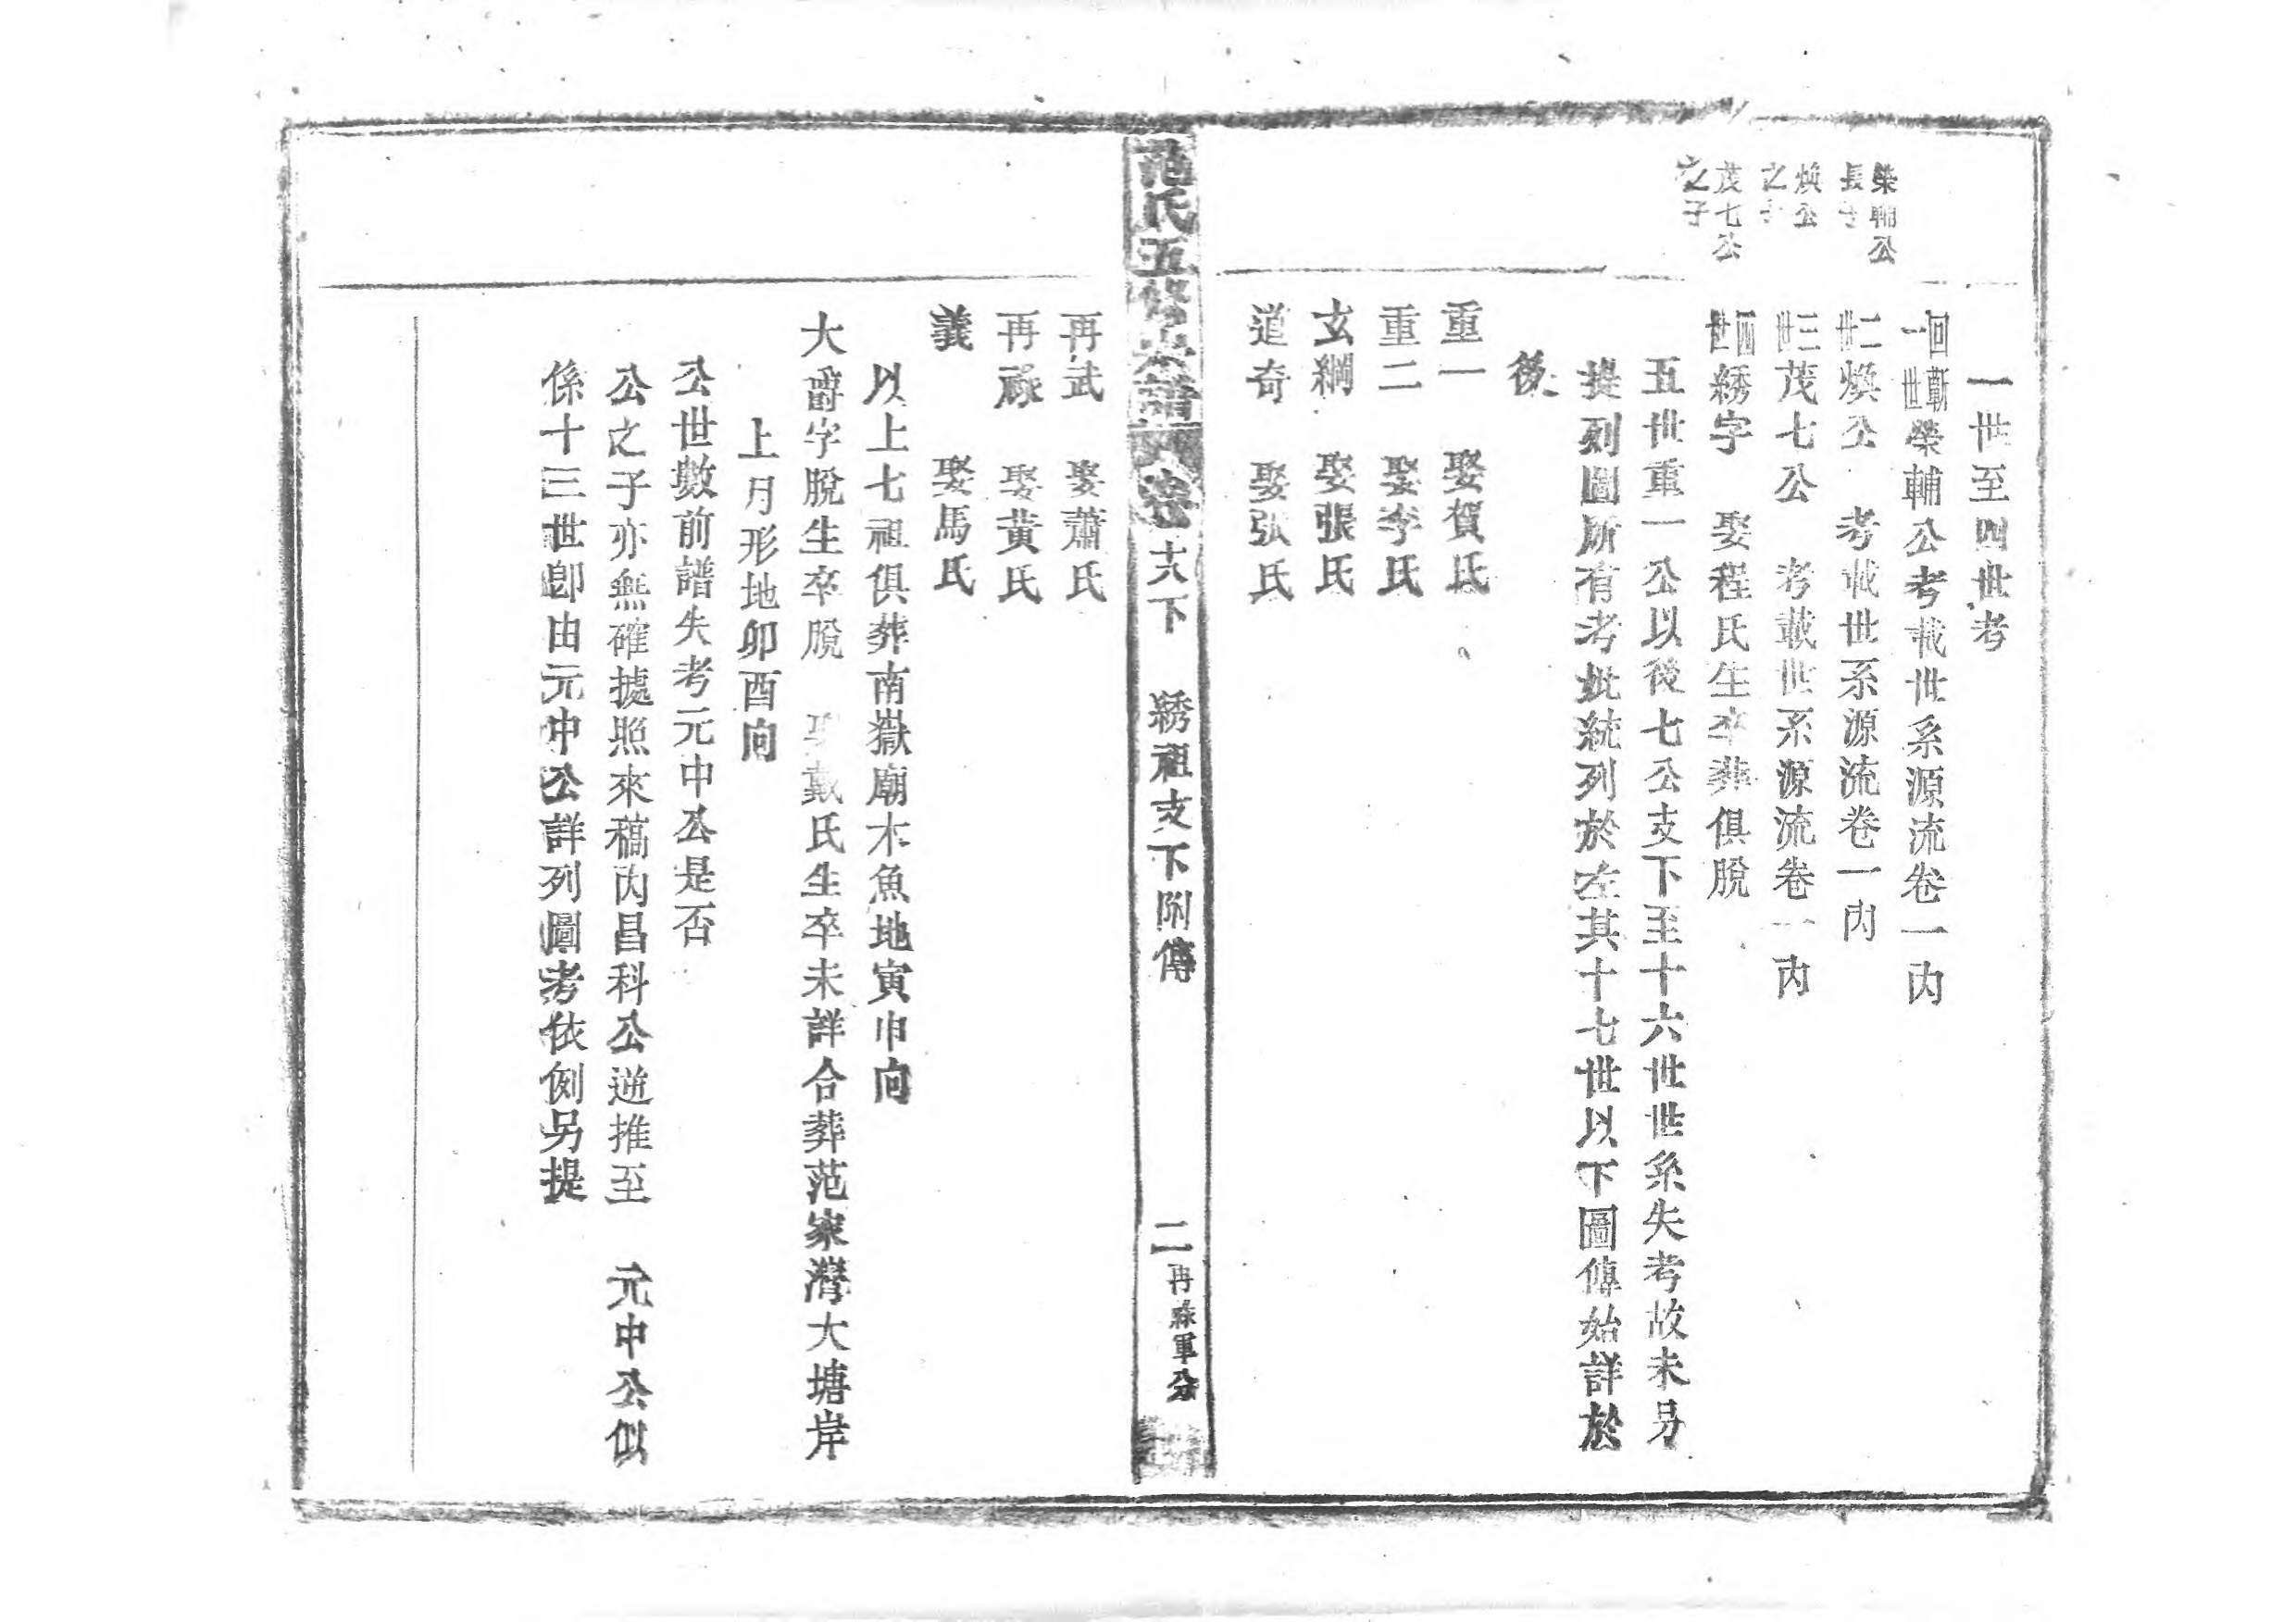 一世至四世考
回蘄一世榮輔公考載世系源流卷一內
榮輔公長子
二世煥公　考載世系源流卷一內
煥公之子
三世茂七公　考載世系源流卷一內
茂七公之子
四世綉字　娶程氏生卒葬俱脫
五世重一公以後七公支下至十六世世系失考故未另
提列圖所有考妣統列於左其十七世以下圖傳始詳於
後
重一　娶賀氏
重二　娶李氏
玄綱　娶張氏
道奇　娶張氏
范氏五修宗譜　卷十六下　綉祖支下附傳　二　再祿軍公
再武　娶蕭氏
再祿　娶黃氏
義　娶馬氏
以上七祖俱葬南嶽廟木魚地寅申向
大爵字脫生卒脫　娶戴氏生卒未詳合葬范家灣大塘岸
上月形地卯酉向
公世數前譜失考元中公是否
公之子亦無確據照來稿內昌科公逆推至　元中公似
係十三世卽由元中公詳列圖考依例另提